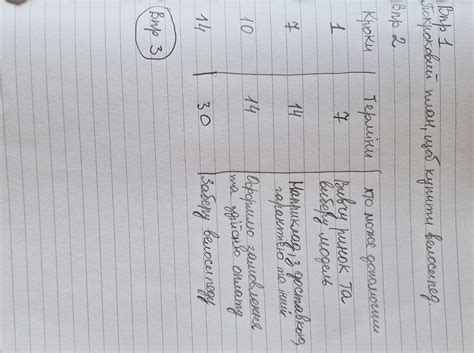 Впр 1
Покроковий план, щоб купити велосипед.
Впр 2
Кроки Терміни хто може допомогти
1 7 Вивчу ринок та
виберу модель
7 14 Наприклад, з доставкою,
гарантією та
10 14 Оформлю замовлення
та здійсню оплату
14 30 Заберу велосипед
Впр 3